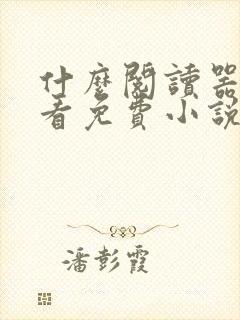 什麼閱讀器
看免費小說
潘彭霞